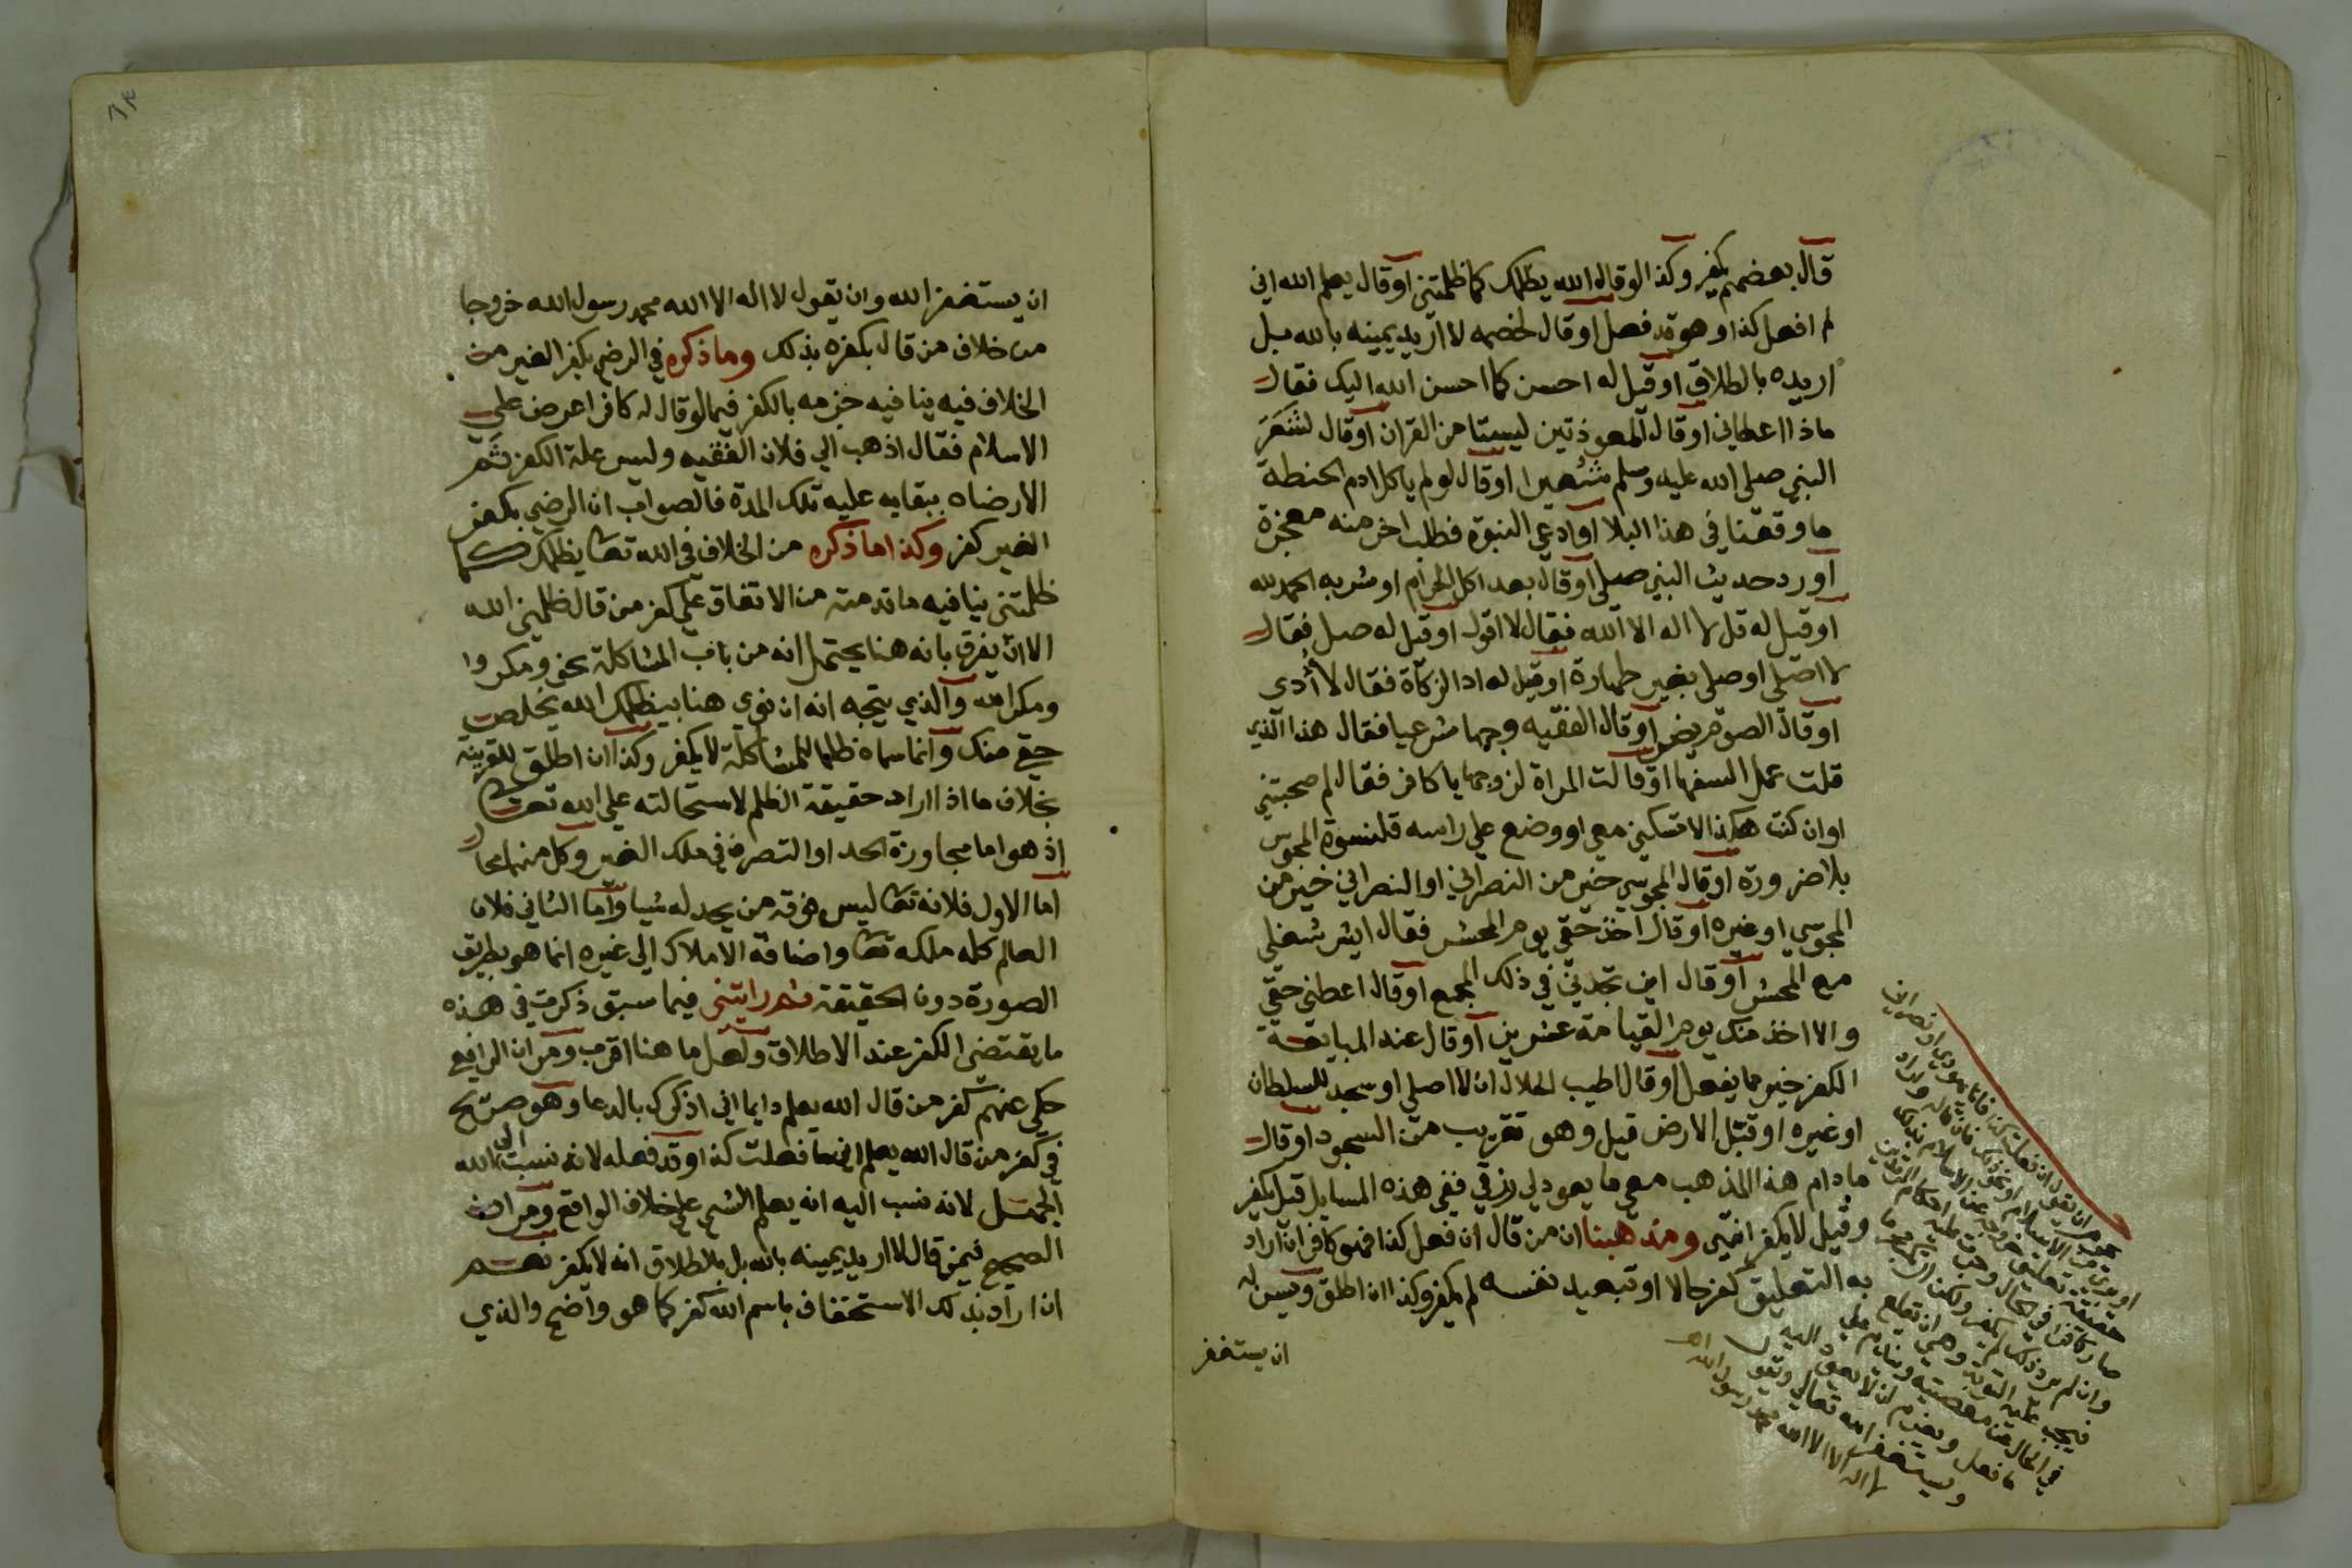 قال بعضهم يكفر وكذا لو قال الله يظلمك كما ظلمتني او قال يعلم الله اني
لم افعل كذا وهو قد فعل او قال لخصمه لا اريد يمينه بالله بل
اريده بالطلاق او قيل له احسن كما احسن الله اليك فقال
ماذا اعطاني او قال المعوذتين ليستا من القران او قال لشَعَرَ
النبي صلى الله عليه وسلم شُعيرا او قال لو لم ياكل ادم الحنطة
ما وقعنا في هذا البلا او ادعى النبوة فطلب اخر منه معجزة
او رد حديث النبي صلى او قال بعد اكل الحرام او شربه الحمد لله
او قيل له قل لا اله الا الله فقال لا اقول او قيل له صل فقال
لا اصلي او صلى بغير طهارة او قيل له اد الزكاة فقال لا أُدي
او قال الصوم مريض او قال الفقيه وجها شرعيا فقال هذا الذي
قلت عمل السفها او قالت المراة لزوجها يا كافر فقال لم صحبتني
او ان كنت هكذا لا تسكني معي او وضع على راسه قلنسوة المجوس
بلا ضرورة او قال المجوسي خير من النصراني او النصراني خير من
المجوسي او غيره او قال اخذ حقي يوم المحشر فقال ايش شغلي
مع المحشر او قال اين تجدني في ذلك الجمع او قال اعطني حقي
والا اخذ منك يوم القيامة عشرين او قال عند المبايعة
الكفر خير مما يفعل او قال اطيب الحلال ان لا اصلي او سجد للسلطان
او غيره او قبّل الارض قيل وهو تقريب من السجود او قال
ما دام هذا المذهب معي ما يعود لي رزقي ففي هذه المسايل قيل يكفر
وقيل لا يكفر انتهى ومذهبنا ان من قال ان فعل كذا فهو كافر ان اراد
به التعليق كفر حالا او تبعيد نفسه لم يكفر وكذا ان اطلق ويسن له
ان يستغفر
ان يقول ان فعلت كذا فانا يهودي او نصراني
او بري من الاسلام او نحو ذلك فان قاله واراد
حقيقة تعليق خروجه عن الاسلام بذلك
صار كافرا في الحال وجرت عليه احكام المرتدين
وان لم يرد ذلك لم يكفر ولكن ارتكب محرما
فيجب عليه التوبة وهي ان يقلع
في الحال عن معصيته ويندم على
ما فعل ويعزم ان لا يعود اليه
ويستغفر الله تعالى ويقول
لا اله الا الله محمد رسول الله اهـ
ان يستغفر الله وان يقول لا اله الا الله محمد رسول الله خروجا
من خلاف من قال بكفره بذلك وما ذكره في الرضى بكفر الغير من
الخلاف فيه ينافيه جزمه بالكفر فيما لو قال له كافر اعرض علي
الاسلام فقال اذهب الي فلان الفقيه وليس علة الكفر ثَم
الا رضاه ببقايه عليه تلك المدة فالصواب ان الرضي بكفر
الغير كفر وكذا ما ذكره من الخلاف في الله تعا يظلمك كما
ظلمتني ينافيه ما قدمته من الاتفاق على كفر من قال ظلمني الله
الا ان يفرق بانه هنا يحتمل انه من باب المشاكلة نحو ومكروا
ومكر الله والذي يتجه انه ان نوى هنا بيظلمك الله يخلص
حقي منك وانما سماه ظلما للمشاكلة لا يكفر وكذا ان اطلق للقرينة
بخلاف ما اذا اراد حقيقة الظلم لاستحالته على الله تعالى
اذ هو اما مجاوزة الحد او التصرف في ملك الغير وكل منهما محال
اما الاول فلانه تعا ليس فوقه من يحد له شيا واما الثاني فلان
العالم كله ملكه تعا واضافة الاملاك الى غيره انما هو بطريق
الصورة دون الحقيقة ثم رايتني فيما سبق ذكرت في هذه
ما يقتضي الكفر عند الاطلاق ولعل ما هنا اقرب ومر ان الرافعي
حكى عنهم كفر من قال الله يعلم دايما اني اذكرك بالدعا وهو صريح
في كفر من قال الله يعلم اني ما فعلت كذا وقد فعله لانه نسبت الى الله
الجهل لانه نسب اليه انه يعلم الشي على خلاف الواقع ومر ان
الصحيح فيمن قال لا اريد يمينه بالله بل بالطلاق انه لا يكفر نعم
ان اراد بذلك الاستخفاف باسم الله كفر كما هو واضح والذي